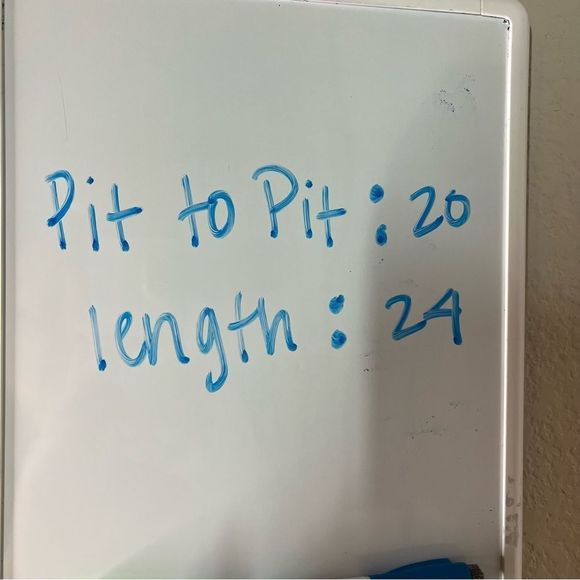 Pit to Pit : 20
length : 24